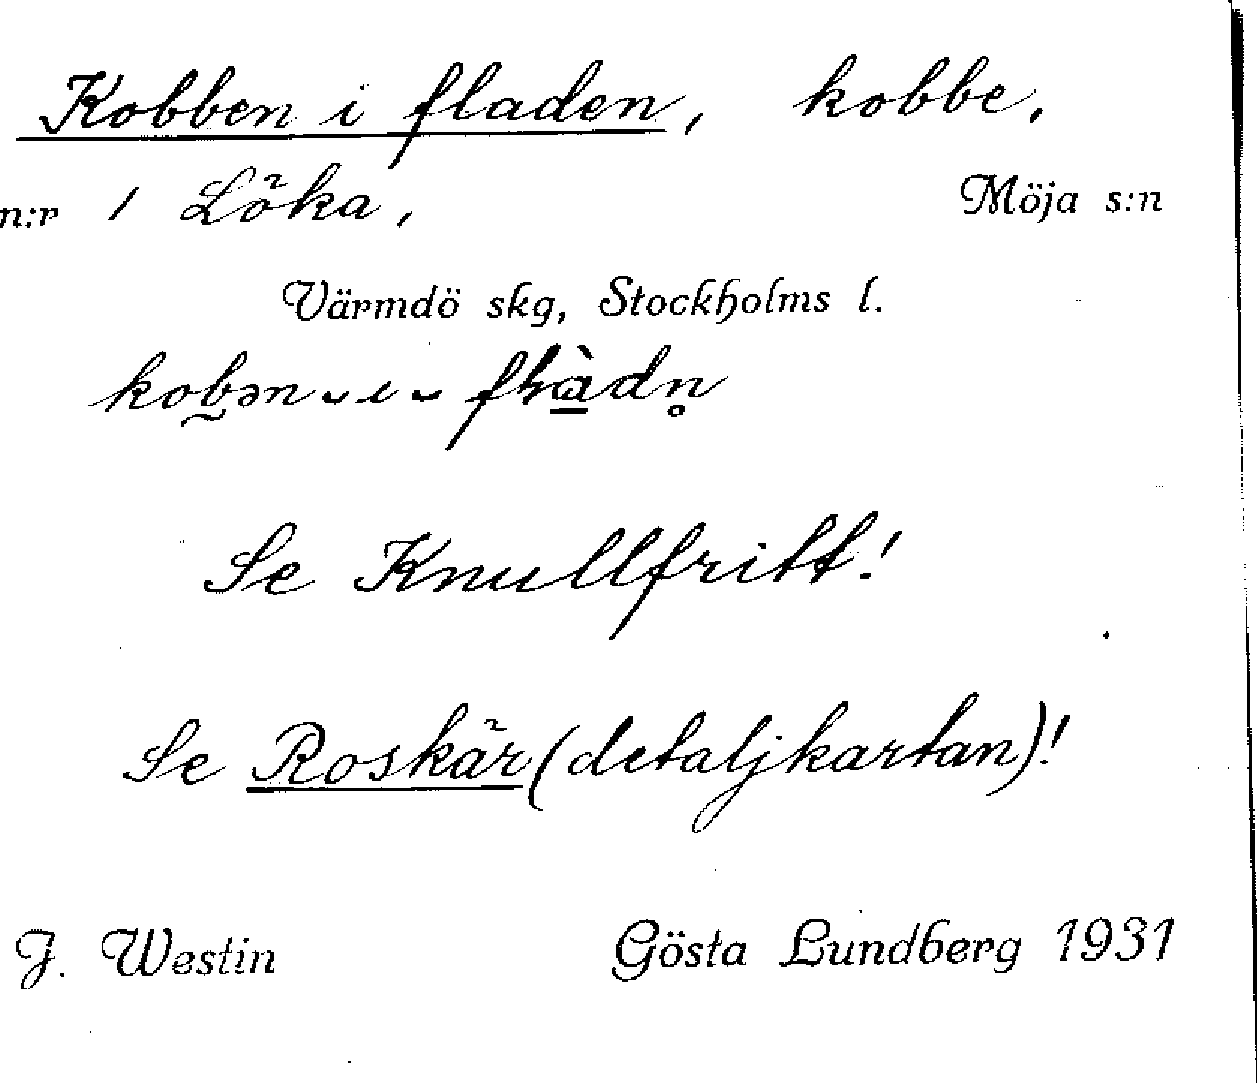 Kobben i fladen, kobbe.
n:r 1 Löka, Möja s:n
Värmdö skg, Stockholms l.
Se Knullfritt!
Se Roskär (detaljkartan)!
J. Westin Gösta Lundberg 1931